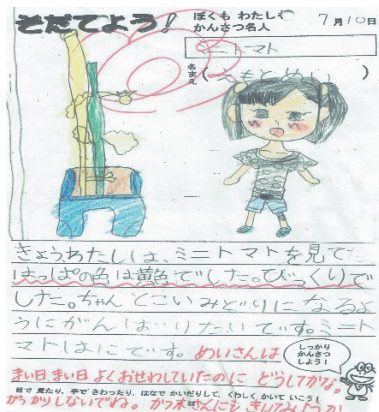 そだてよう!
ぼくも わたしも
かんさつ名人
7月10日
ミニトマト
名まえ
(えもとめい)
きょうわたしは、ミニトマトを見て
はっぱの色は黄色でした。びっくりで
した。ちゃんとこいみどりになるよ
うにがんばりたいです。ミニト
マトは にです。めいさんは
しっかり
かんさつ
しよう!
まい日まい日 よくおせわしていたのに どうしてかな。
目で見たり、手でさわったり、はなでかいだりして、くわしくかいていこう!
がっかりしないでね。